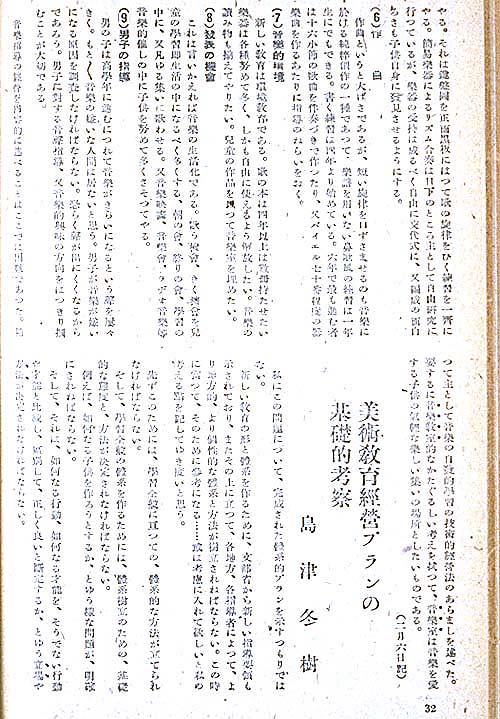 やる。それは鍵盤圖を正面黒板にはつて歌の旋律をひく練習を一齊に
やる。簡易樂器によるリズム合奏は目下のところ主として自由研究に
行つているが、樂器の受持は成るべく自由に交代式に、又編成の面白
さも子供自身に發見させるようにする。
(6) 作曲
作曲というと大げさであるが、短い旋律を口ずさませるのも音樂に
於ける純粋創作の一種であつて、樂譜を用いない鼻歌風の練習は一年
生にでもできる。書く練習は四年より始めている。六年で最も進む者
は十六小節の歌曲を伴奏づきで作つたり、又バイエル七十番程度の器
樂曲を作るあたりに指導のねらいをおく。
(7) 音樂的環境
新しい教育は環境教育である。歌の本は四年以上は數冊持たせたい
樂器は各種努めて多く、しかも自由に使えるよう解放したい。音樂の
讀み物も揃えてやりたい。兒童の作品を以つて音樂室を埋めたい。
(8) 發表の機會
これは言いかえれば音樂の生活化である。歌う機會、きく機會を兒
童の學習即生活の中になるべく多くする。朝の會、終りの會、學習の
中に、又凡ゆる集いに歌わせる。又音樂映畫、音樂會、ラヂオ音樂等
音樂的催しの中に子供を努めて多くさそつてやる。
(9) 男子の指導
男の子は高學年に進むにつれて音樂がきらいになるという聲を屢々
きく。もと／＼音樂の嫌いな人間は居ないと思う。男子が音樂が嫌い
になる原因を調査しなければならない。恐らく聲が出にくくなるから
であろう。男子に對する音聲指導、又音樂的興味の方向をはつきり掴
むことが大切である。
音樂指導の經營を內容的に述べることはここでは困難であつた。
つて主として音樂の自發的學習の技術的經營法のあらましを述べた。
要するに音樂教室的なかたぐるしい考えを拭つて、音樂室は音樂を愛
する子供の氣輕な樂しい集いの場所としたいものである。
(二月六日記)
美術敎育經營プランの
基礎的考察
島津冬樹
私はこの問題について、完成された體系的プランを示すつもりでは
ない。
新しい教育の形と體系を作るために、文部省から新しい指導要領も
示されており、またその上に立つて、各地方、各指導者によつて、よ
り地方的、より個性的な體系と方法が樹立されねばならない。この時
に當つて、そのために參考になる……或は考慮に入れて欲しいと私の
考える點を記してゆき度いと思う。
先ずこのためには、學習全般に亘つての、體系的な方法が立てられ
なければならない。
そして、學習全般の體系を作るためには、體系樹立のための、基礎
的な態度と、方法が決定されなければならない。
例えば、如何なる子供を作ろうとするか、とゆう様な問題が、明確
にされねばならない。
そして、それは、如何なる行動、如何なる才能を、そうでない行動
や才能と比較し、區別して、正しく良いと斷定するか、とゆう立場や
方法が決定されなければならない。
32